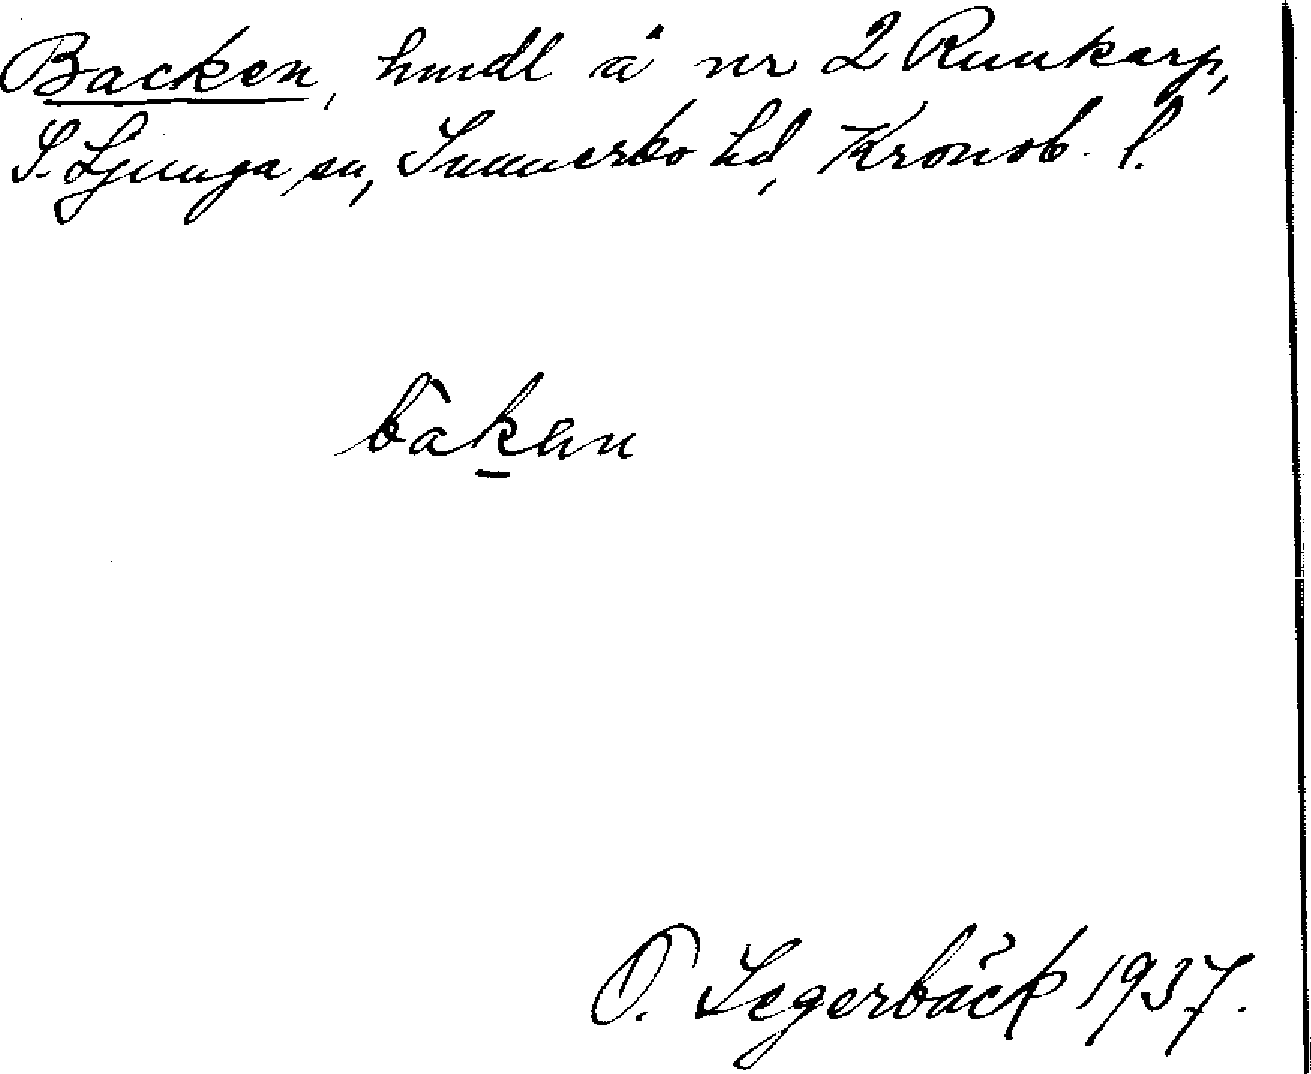 Backen, hmdl å nr 2 Runkarp,
S. Ljunga sn, Sunnerbo hd, Kronob. l.
bàken
O. Segerbäck 1937.